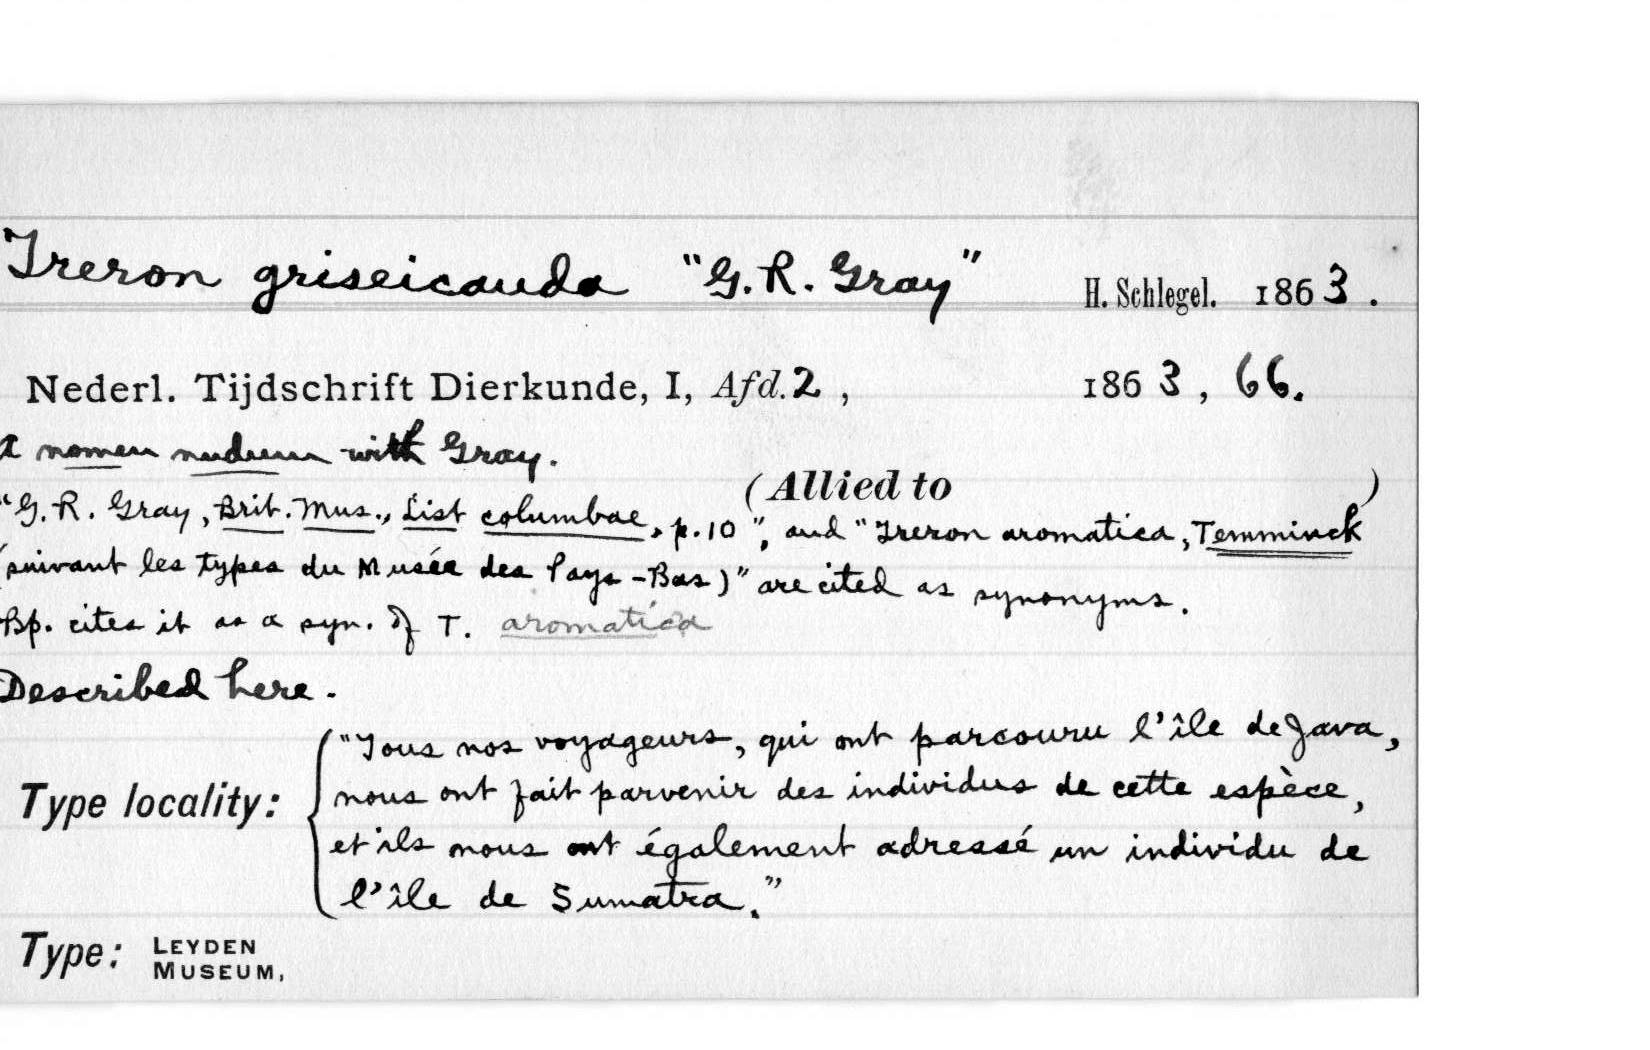 Treron griseicauda "G. R. Gray" H. Schlegel. 1863.
Nederl. Tijdschrift Dierkunde, I, Afd. 2, 1863, 66.
A nomen nudum with Gray.
(Allied to )
"G. R. Gray, Brit. Mus., List columbae, p. 10", and "Treron aromatica, Temminck
(suivant les types du Musée des Pays-Bas)" are cited as synonyms.
Bp. cites it as a syn. of T. aromatica
Described here.
Type locality: "Tous nos voyageurs, qui ont parcouru l'île de Java,
nous ont fait parvenir des individus de cette espèce,
et ils nous ont également adressé un individu de
l'île de Sumatra."
Type: LEYDEN
MUSEUM,